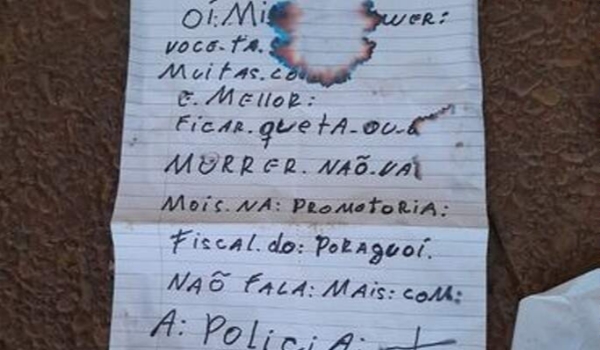 OI: Mi WER:
VOCE-TA.
MUITAS. CO
E. MELLOR:
FICAR. QUETA-OU-
MORRER. NAÕ. VA
MAIS. NA: PROMOTORIA:
FISCAL. do: PORAGUAI.
NAÕ FALA: MAIS: COM:
A: POLICIA: